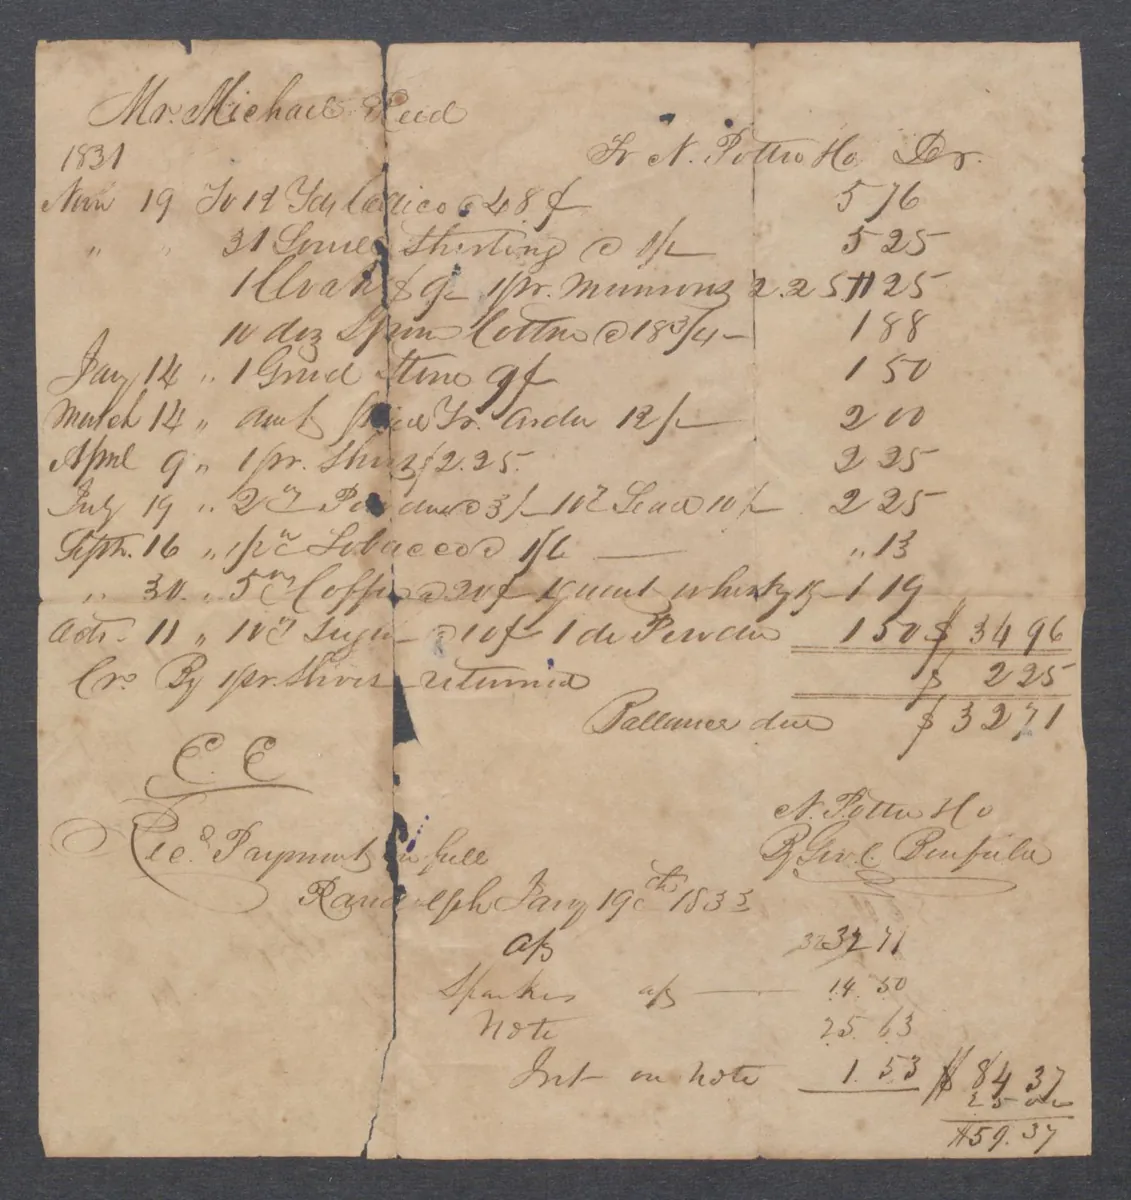 Mr. Michael Reid
1831 To N. Potter & Co Dr.
Novr 19 To 12 Yds Calico @ 48¢ 5 76
" " 31 Lowell Shirting @ 1/- 5 25
1 Cloak $9- 1 pr. Munroes 2.25 11 25
10 doz Spun Cotton @ 18 3/4- 1 88
Jany 14 " 1 Grind Stone 9/- 1 50
March 14 " amt paid Yr. order 12/- 2 00
April 9 " 1 pr. Shoes $2.25. 2 25
July 19 " 2 lb Powder @ 3/- 10 lb Lead 10/- 2 25
Septr. 16 " 1/2 lb Tobacco @ 1/6 — " 13
" 30. " 5 lb Coffee @ 20¢ 1 quart whisky 19- 1 19
Octr. 11 " 10 lb Sugar @ 10¢ 1 do Powder 1 50 $ 34 96
Cr. By 1 pr. Shoes returned $ 2 25
Ballance due $ 32 71
E. E
N. Potter & Co
Recd Payment in full By Geo. C. Penfield
Randolph Jany 19th 1833
a/c 32 71
Sparkes a/c — 14.50
Note 25.63
Int on note 1.53 $ 84 37
25 00
$59.37